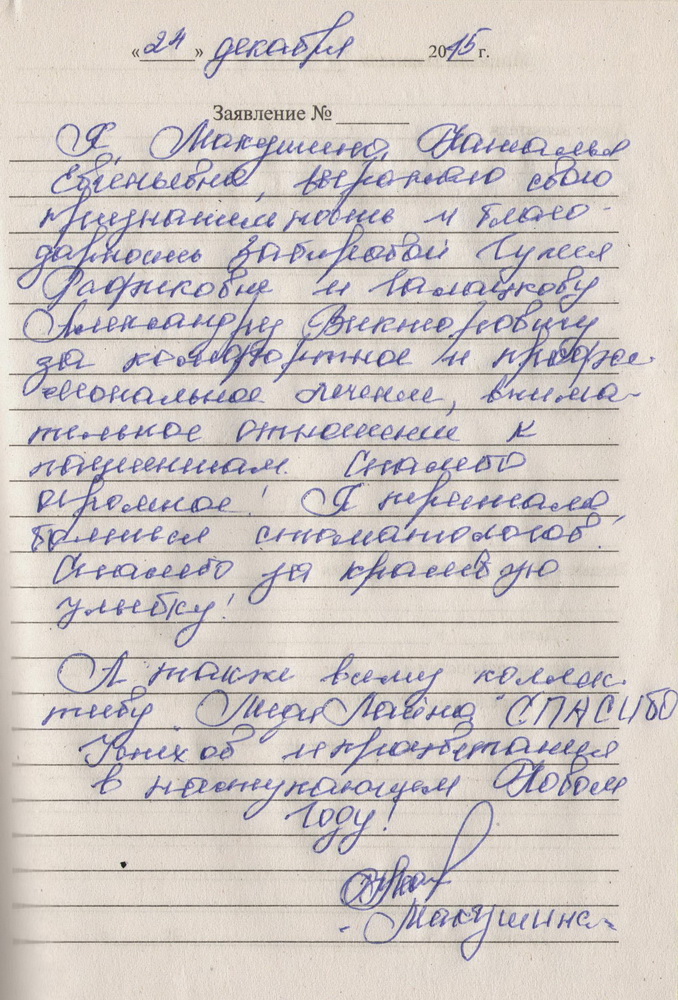 «24» декабря 2015 г.
Заявление №
Я, Макушина Наталья
Евгеньевна, выражаю свою
признательность и благо-
дарность Забировой Гузели
Рафиковне и
Александру Викторовичу
за комфортное и профес-
сиональное лечение, внима-
тельное отношение к
пациентам. Спасибо
огромное! Я перестала
бояться стоматологов!
Спасибо за красивую
улыбку!
А также всему коллек-
тиву Меди Лайна СПАСИБО
Успехов и процветания
в наступающем Новом
Году!
Макушина